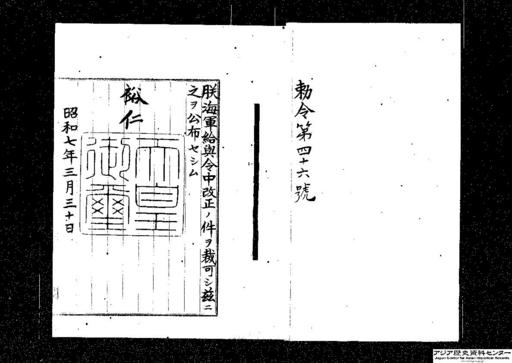 勅令第四十六號
朕海軍給與令中改正ノ件ヲ裁可シ茲ニ
之ヲ公布セシム
裕仁
天皇
御璽
昭和七年三月三十日
アジア歴史資料センター
Japan Center for Asian Historical Records